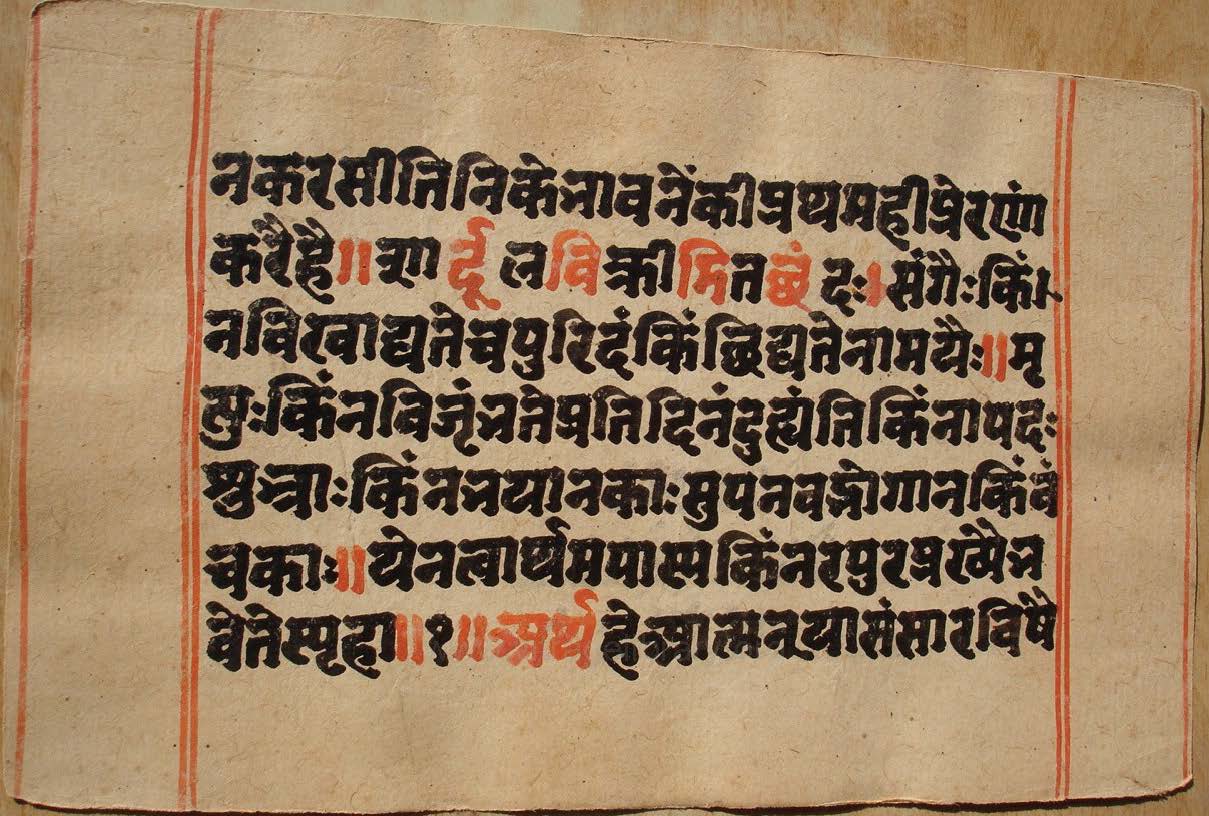 नकरमीतिनिकेभावनेंकीप्रथमहीप्रेरणां
करैहै॥शार्दूलविक्रीडितछंदः॥संगैःकिं।
नविखाद्यतेचपुरिदंकिंछिद्यतेनामयैः॥मृ
त्युःकिंनविजृंभतेप्रतिदिनंदुह्यंतिकिंनापदः
श्रुभ्राःकिंनभयानकाःसुपनवद्भोगानकिंवं
चकाः॥येनत्वार्थमपास्यकिंनरपुरप्रख्यैभ
वेतेस्पृहा॥१॥अर्थहेआत्मन्यासंसारविषै